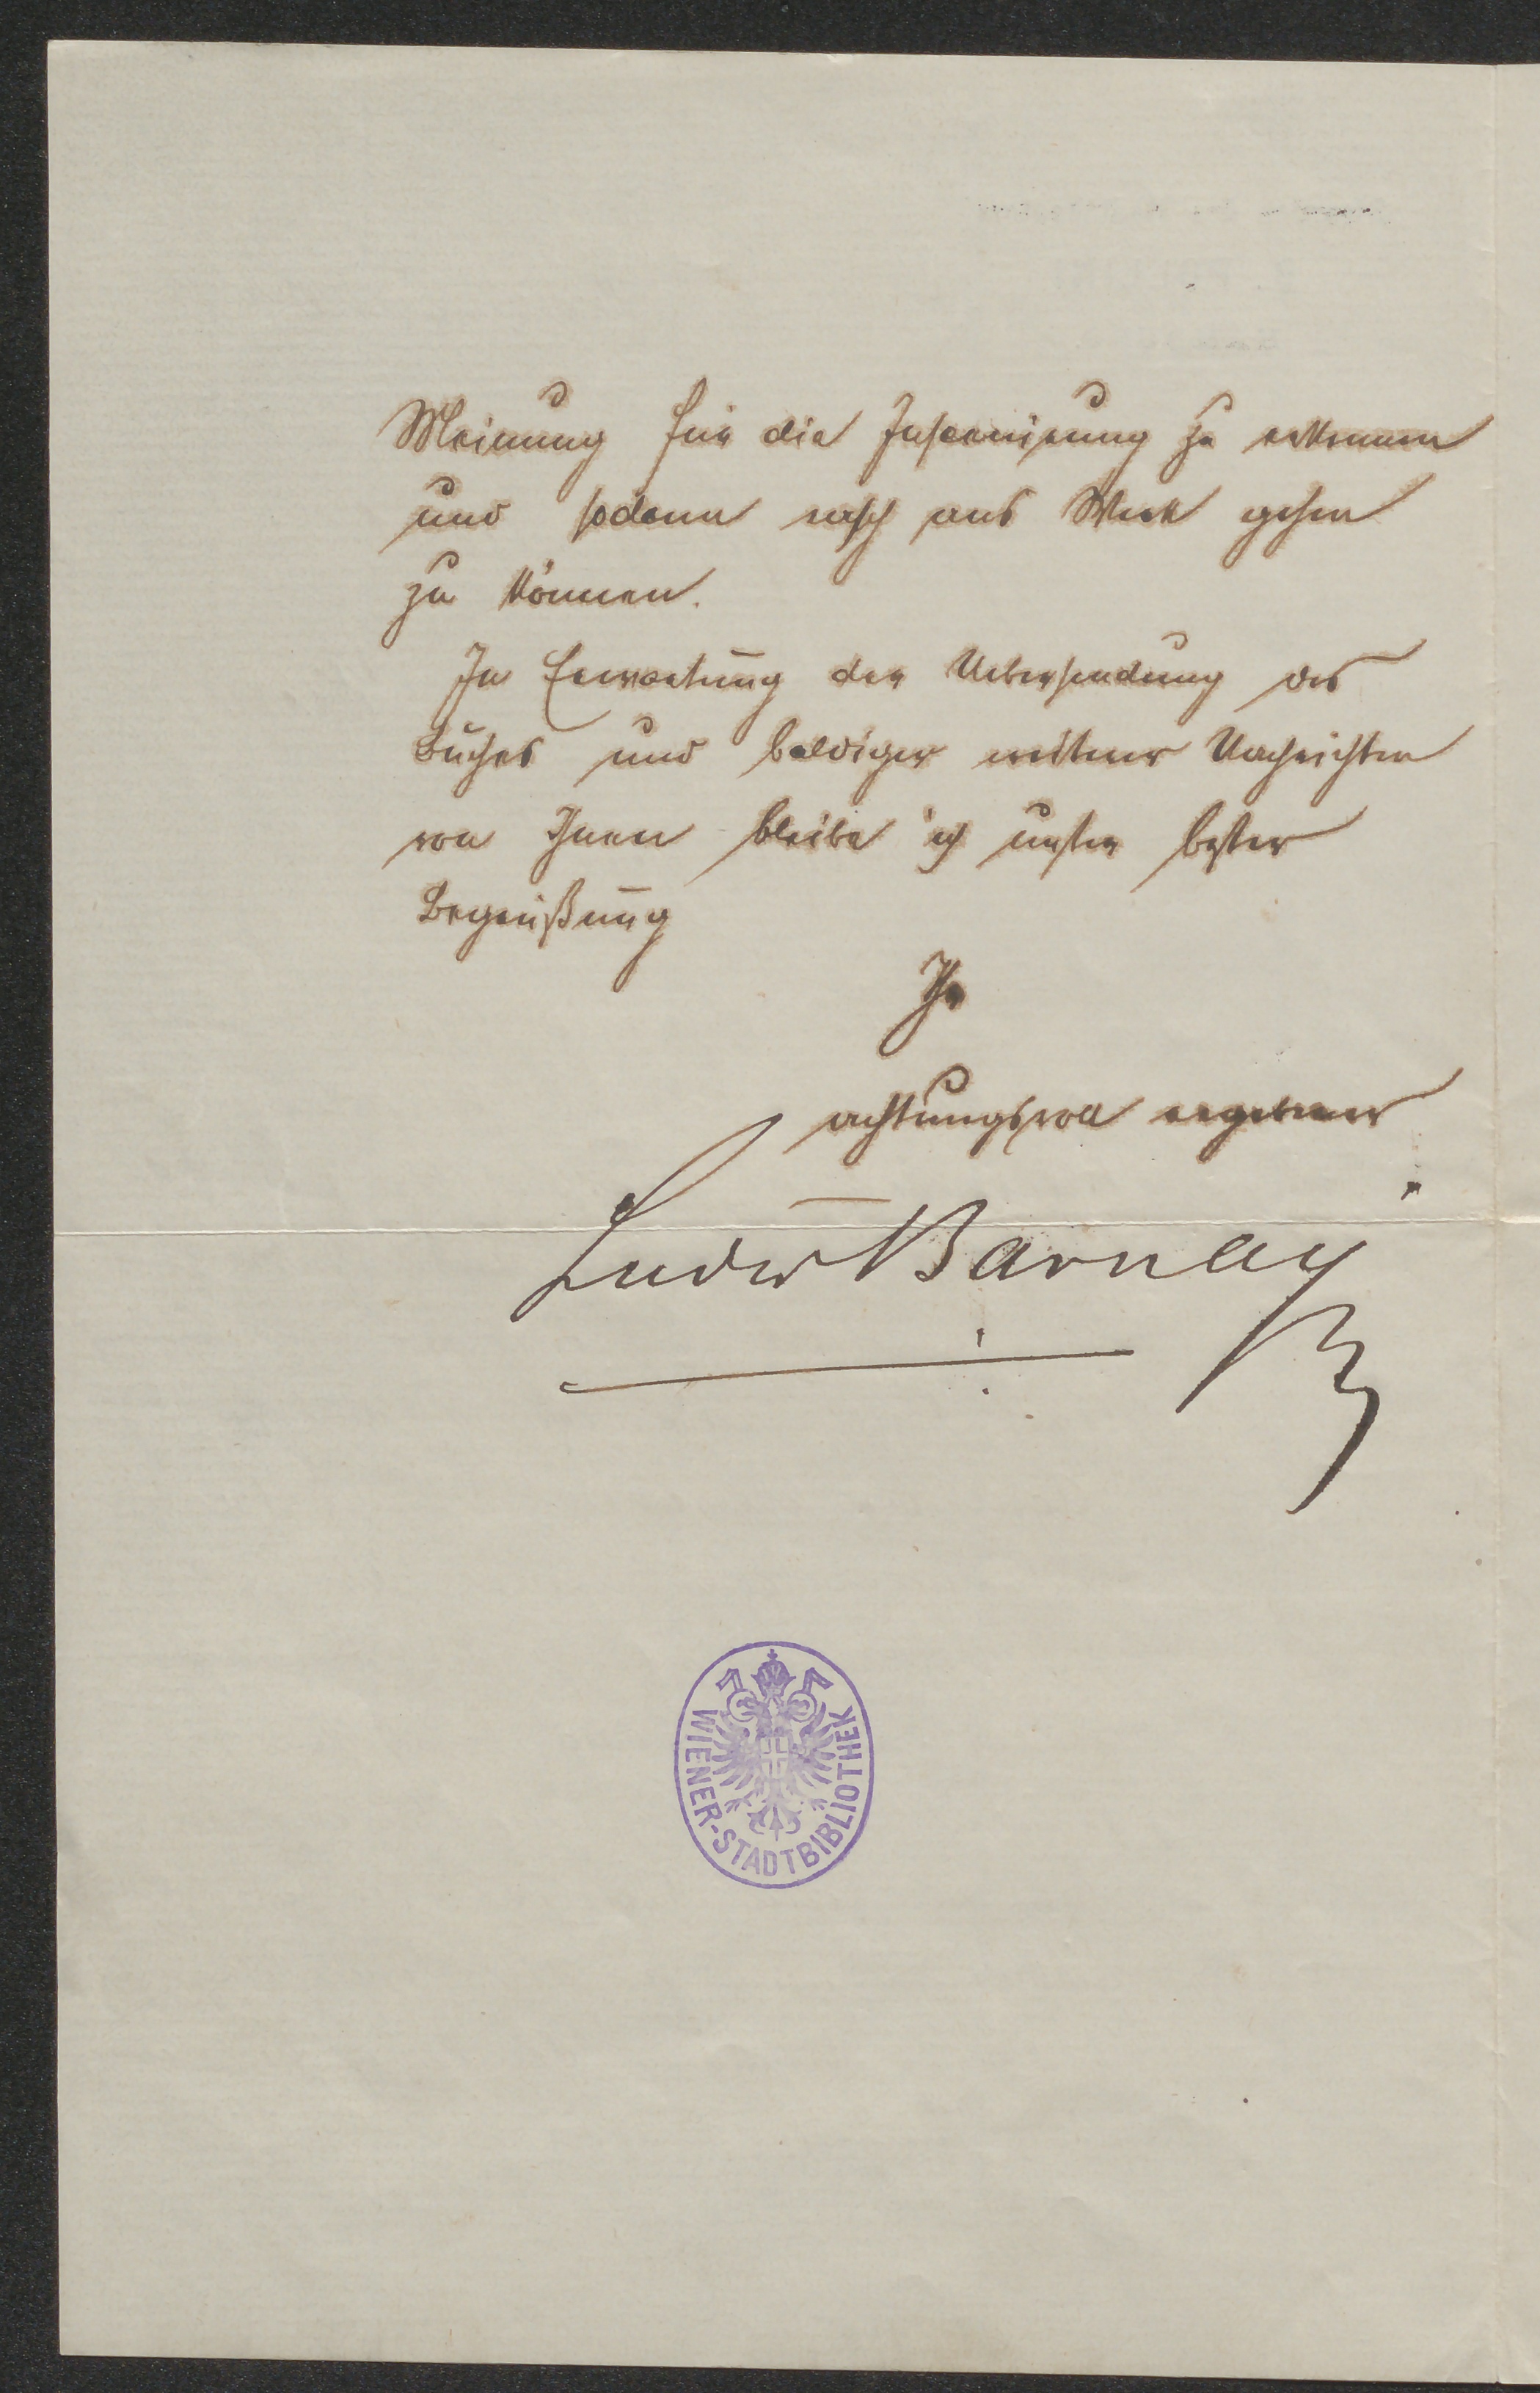 Meinung für die Inscenirung zu erkennen
und sodann rasch ans Werk gehen
zu können.
In Erwartung der Uebersendung des
Buches und baldiger weiterer Nachrichten
von Ihnen bleibe ich unter bester
Begrüßung
Ihr
achtungsvoll ergebener
Ludw Barnay
WIENER-STADTBIBLIOTHEK